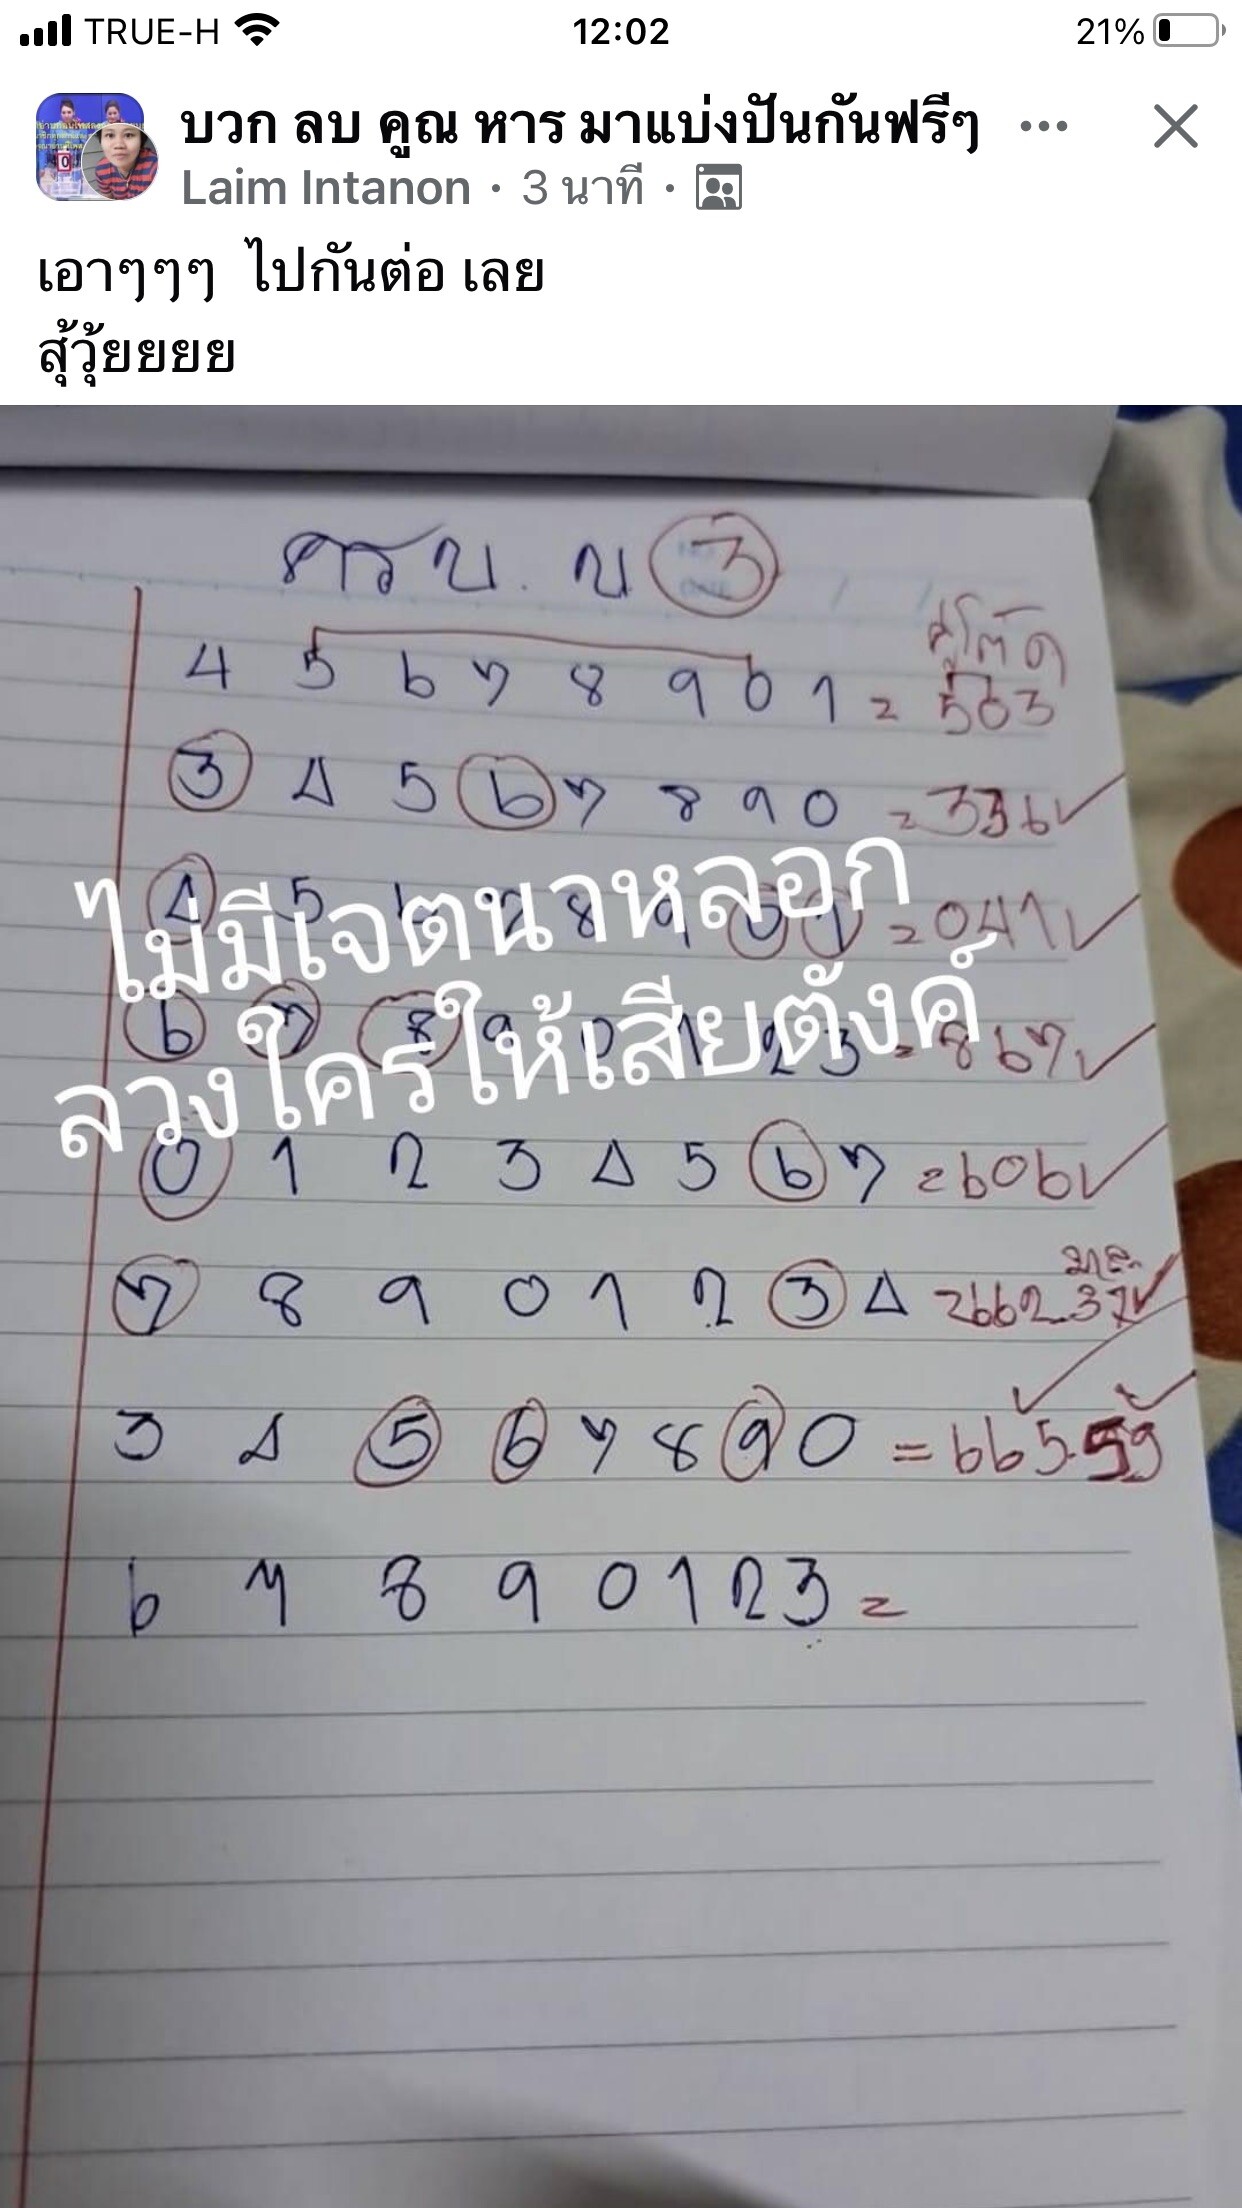 TRUE-H 12:02 21%
บวก ลบ คูณ หาร มาแบ่งปันกันฟรีๆ
Laim Intanon · 3 นาที ·
เอาๆๆๆ ไปกันต่อ เลย
สุ้วุ้ยยยย
บ. บ 3
4 5 6 7 8 9 0 1 = 503
3 4 5 6 7 8 9 0 = 336
4 5 6 7 8 9 0 1 = 041
ไม่มีเจตนาหลอก
6 7 8 9 0 1 2 3 = 867
ลวงใครให้เสียตังค์
0 1 2 3 4 5 6 7 = 606
7 8 9 0 1 2 3 4 = 662.37
3 4 5 6 7 8 9 0 = 665.59
6 7 8 9 0 1 2 3 =